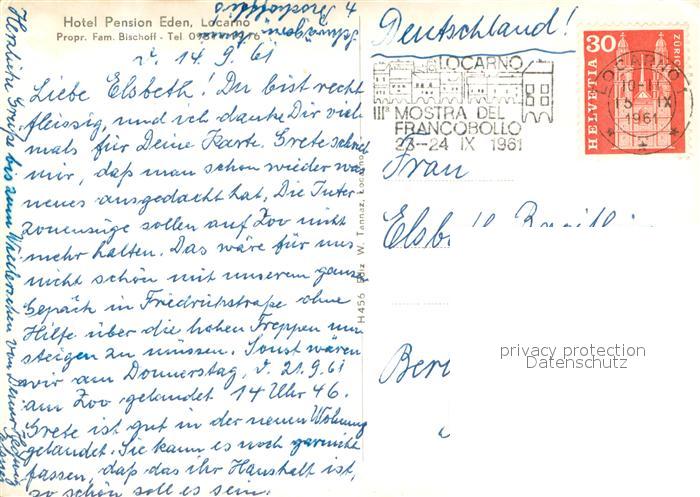 Hotel Pension Eden, Locarno
Propr. Fam. Bischoff - Tel
d. 14. 9. 61
Liebe Elsbeth! Du bist recht
fleissig, und ich danke Dir viel-
mals für Deine Karte. Grete schrieb
mir, daß man schon wieder was
neues ausgedacht hat. Die Inter-
zonenzüge sollen auf Zoo nicht
mehr halten. Das wäre für uns
nicht schön mit unserem ganzen
Gepäck in Friedrichstraße ohne
Hilfe über die hohen Treppen nun
steigen zu müssen. Sonst wären
wir am Donnerstag, d. 21.9.61
am Zoo gelandet 14 Uhr 46.
Grete ist gut in der neuen Wohnung
gelandet. Sie kann es noch garnicht
fassen, daß das ihr Haushalt ist,
so schön soll es sein.
Herzliche Grüße bis zum Wiedersehen von Deiner Hedwig
H 456 Ediz W. Tannaz, Locarno
Deutschland!
LOCARNO
IIIª MOSTRA DEL
FRANCOBOLLO
23--24 IX 1961
30
HELVETIA
ZÜRICH
LOCARNO 1
15 IX
1961
Frau
privacy protection
Datenschutz